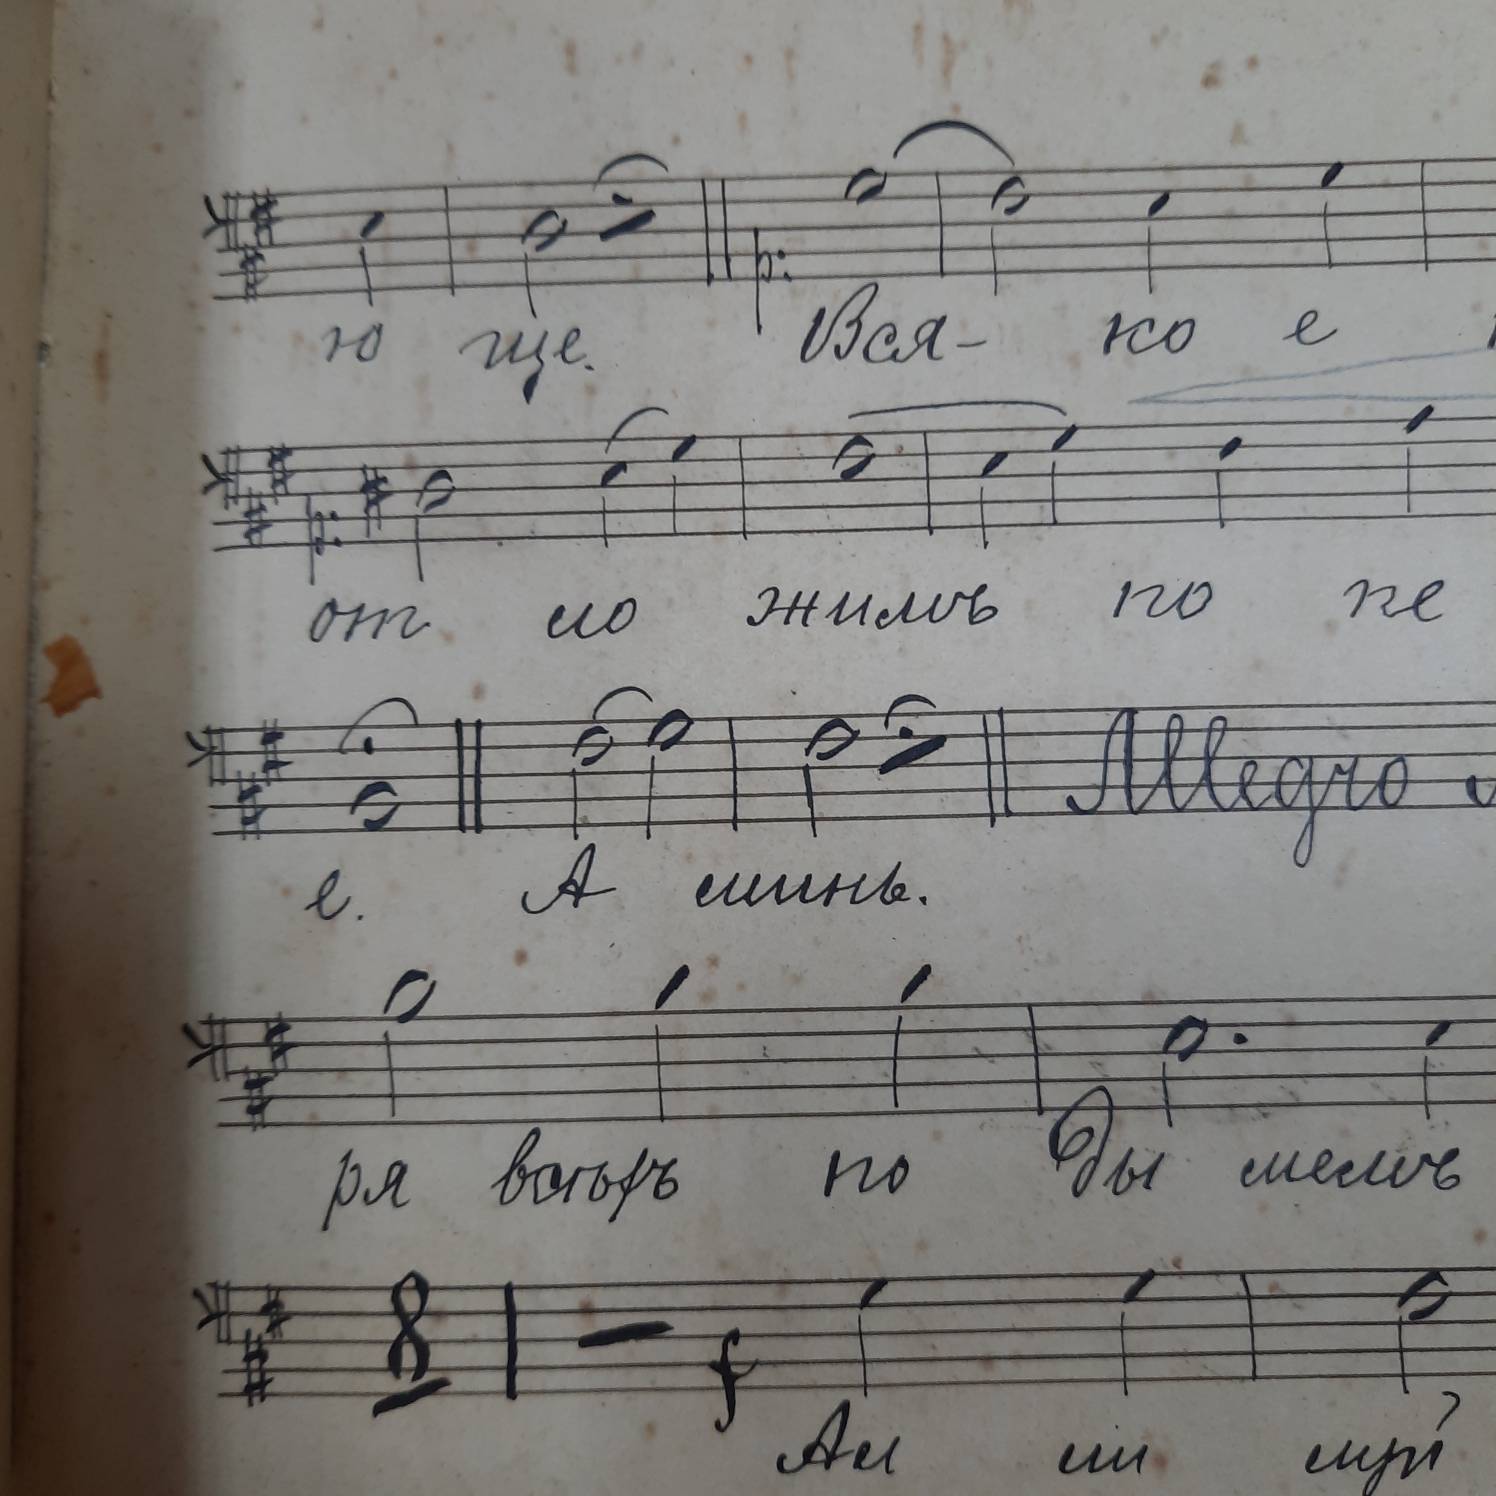 ю ще. Вся- ко е
от ло жимъ по пе
Allegro
е. А минь.
ря всѣхъ по ды мемъ
8 f
Ал ли луй